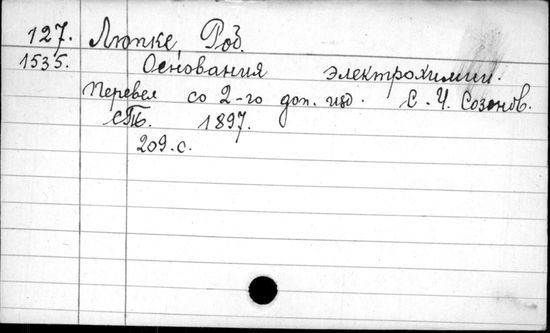 127. Люпке, Роб.
1535. Основания электрохимии.
Перевел со 2-го доп. изд. С. И. Созонов.
СПб. 1897.
209. с.